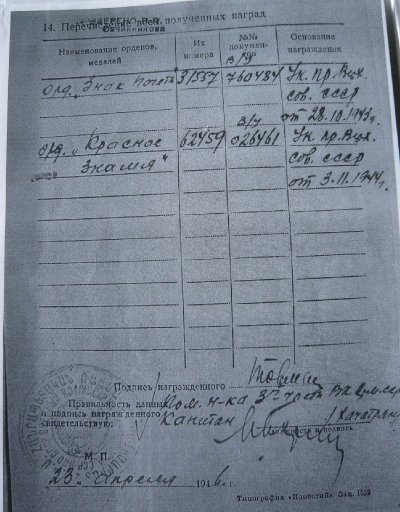 14. Перечисление всех полученных наград
Наименование орденов, медалей
Их номера
№№ докумен-
Основание награждения
орд. „Знак почета"
31557
В/№
760484
Ук. Пр. Верх.
сов. СССР
от 28.10.1943г.
орд. „Красное
знамя"
62459
026461
Ук. Пр. Верх.
сов. СССР
от 3.11.1944г.
Подпись награжденного
Правильность данных
и подпись награжденного
свидетельствую:
Пом. н-ка 3го
Капитан
должность и подпись
М. П.
23 апреля 194 г.
Типография «Известий». Зак. 1559